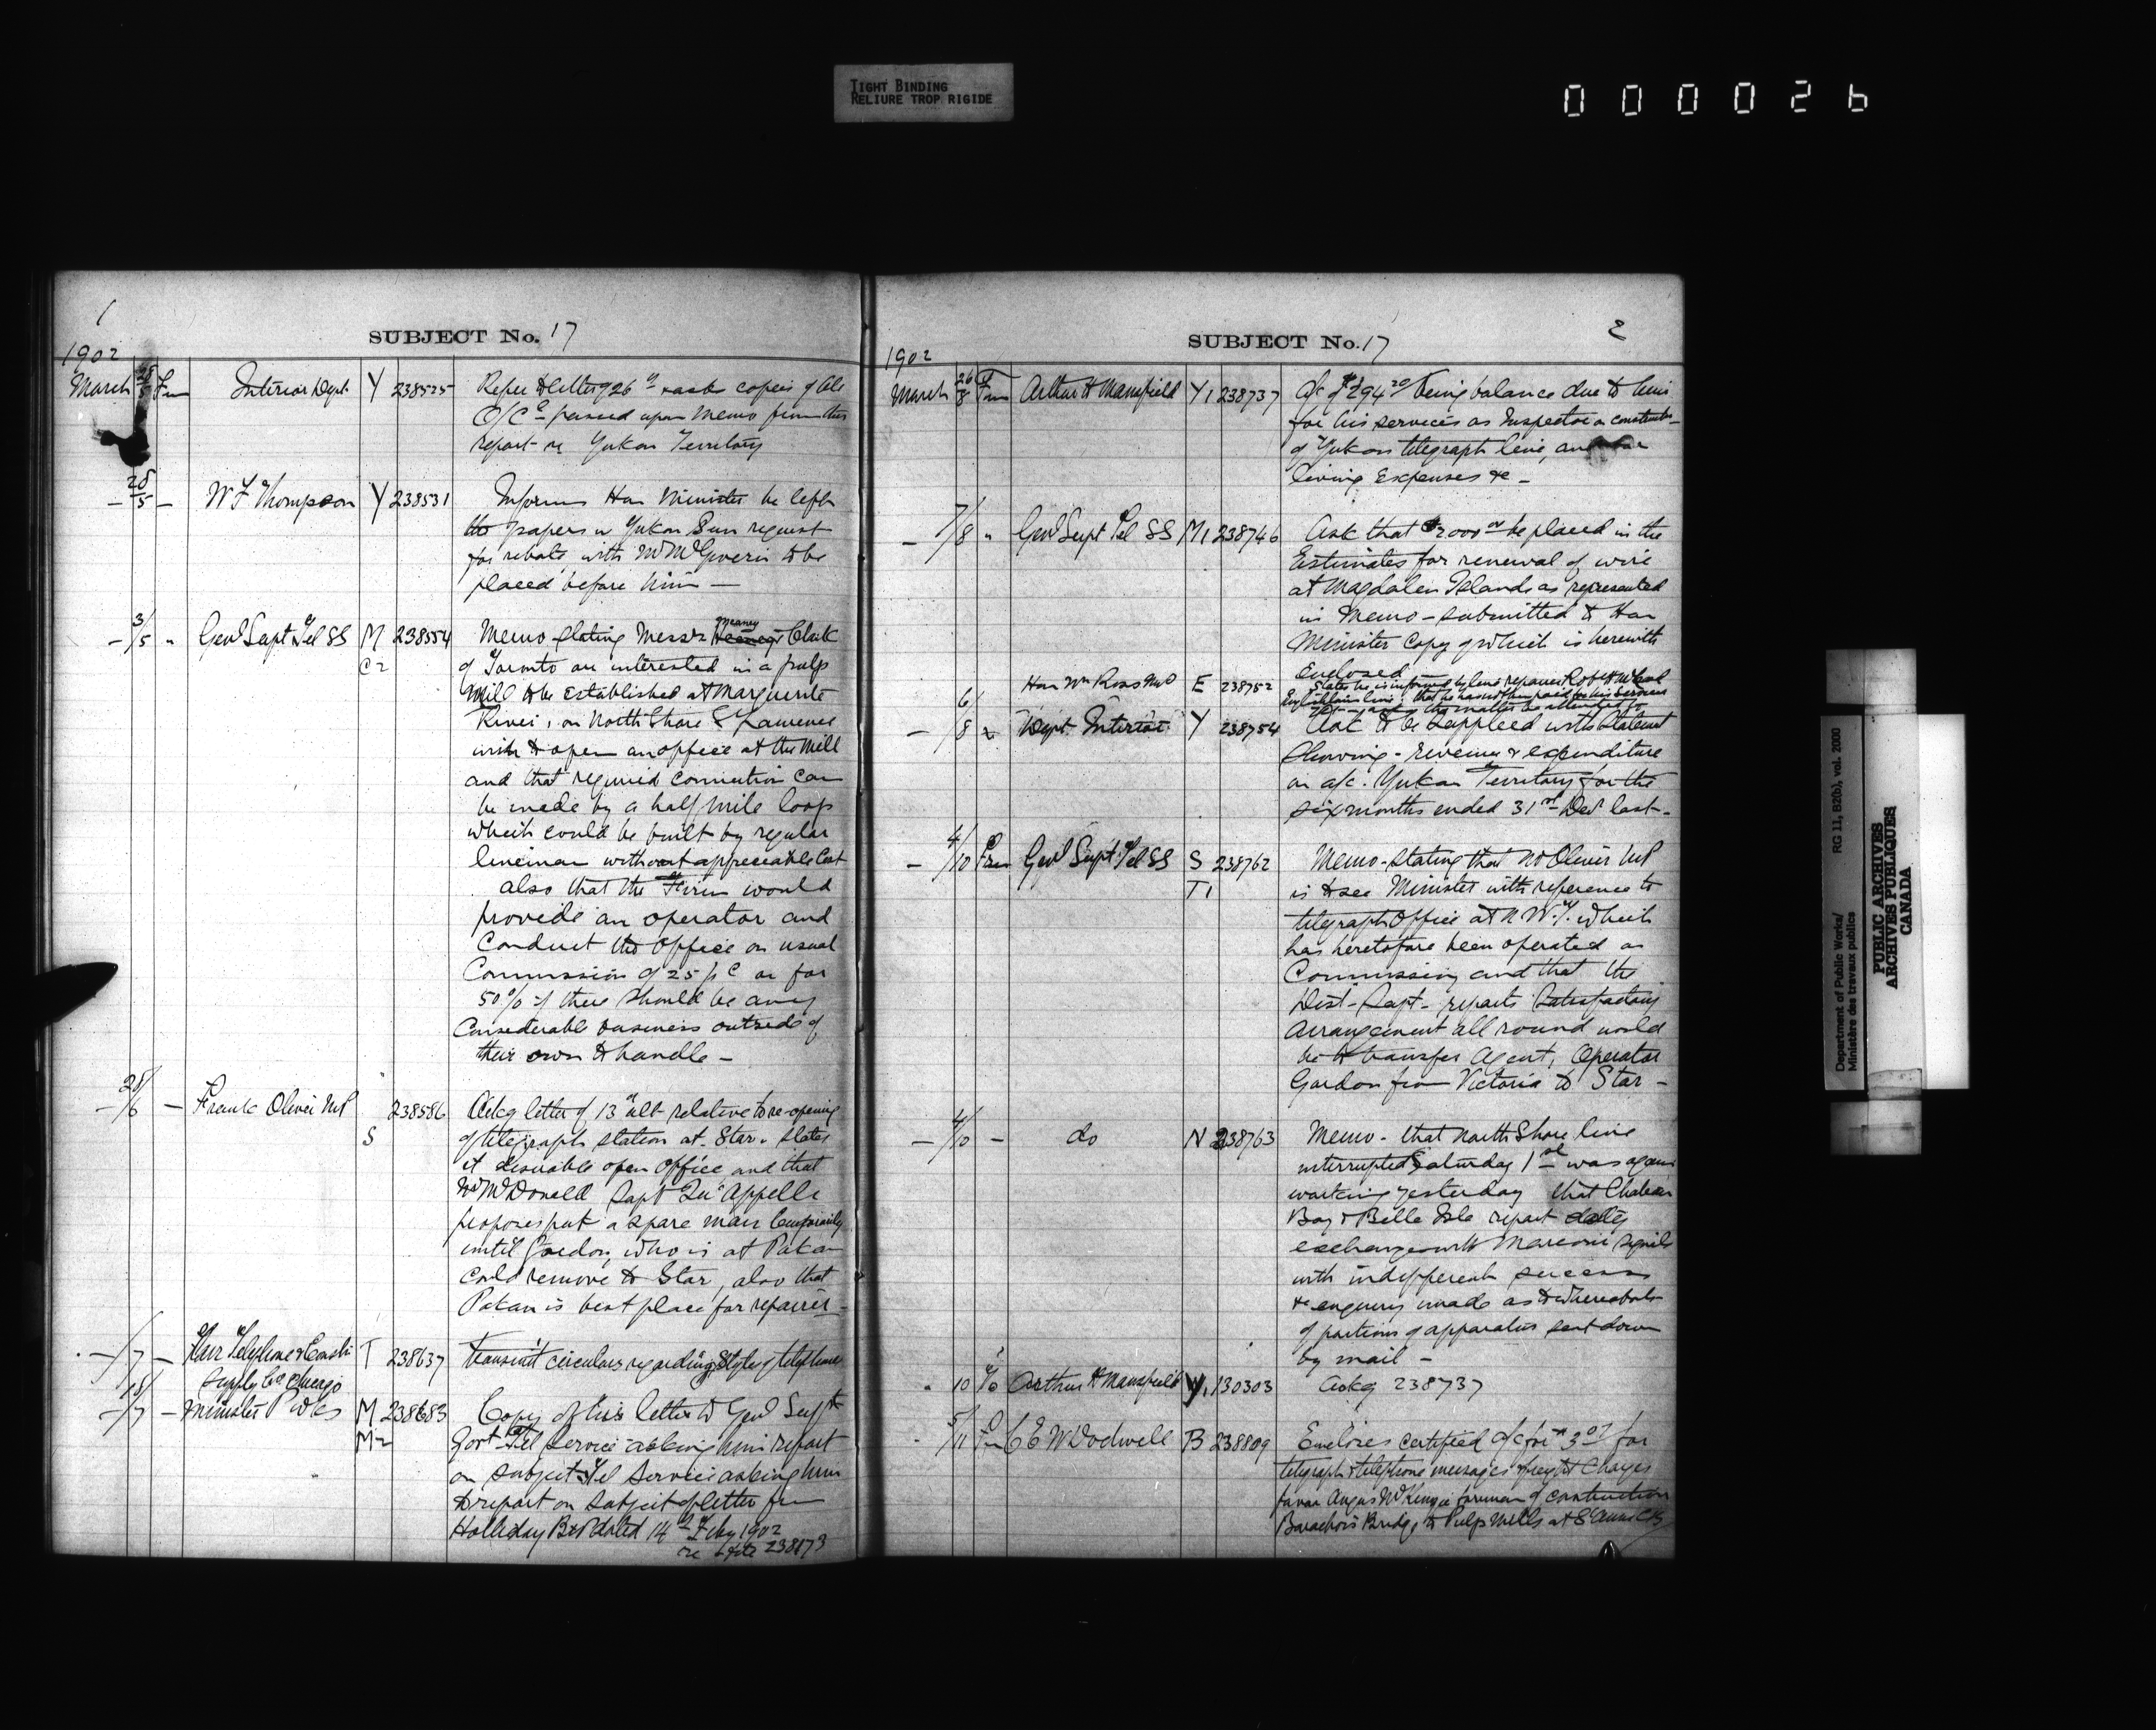 TIGHT BINDING
RELIURE TROP RIGIDE
000026
1
SUBJECT No. 17
1902
March 28/5 Fm Interior Dept Y 238525 Refer to letter of 26" copies of all
O/C passed upon memo from this
report re Yukon Territory
– 28/5 – W F Thompson Y 238531 Informs Hon Minister he left
the papers in Yukon Sun request
for rebate, with Mr McGiverin to be
placed before him –
– 3/5 " Genl Supt Tel SS M 238554 Memo stating Messrs Meaney & Clark
C2 of Toronto are interested in a pulp
mill to be established at Marguerite
River, on North Shore St Lawrence
wish to open an office at the mill
and that required connection can
be made by a half mile loop
which could be built by regular
lineman without appreciable cost
also that the Firm would
provide an operator and
conduct the office on usual
commission of 25 p c or for
50% if there should be any
considerable business outside of
their own to handle –
– 28/6 – Frank Oliver MP 238586 Ackg letter of 13" ult relative to re-opening
S of telegraph station at Star. states
it desirable open office and that
Mr McDonald Supt Qu'Appelle
proposes put a spare man temporarily
until Gordon, who is at Pakan
could remove to Star, also that
Pakan is best place for repairer –
– /7 – Telephone & Constr T 238637 Transmit circulars regarding style of telephone
Supply Co Chicago
– 18/7 – Minister P Wks M 238683 Copy of his letter to Genl Supt
M2 Govt Tel Service asking him report
on subject Tel Service asking him
to report on subject of letter fm
Holliday Bros dated 14th Feby 1902
re 238173
2
SUBJECT No. 17
1902
March 26/8 Fm Arthur H Mansfield Y1 238737 A/c of $294 20 being balance due to him
for his services as Inspector on construction
of Yukon telegraph line, and for
living expenses &c –
– 7/8 " Genl Supt Tel SS M1 238746 Ask that $2000 00 be placed in the
Estimates for renewal of wire
at Magdalen Islands as represented
in memo – submitted to Hon
Minister copy of which is herewith
Enclosed
6/ Hon Wm Ross MP E 238752 States he is informed by line repairer Robt
line, that he has not been paid for his services
the matter be attended to
– /8 " Dept Interior Y 238754 Ask to be supplied with statement
showing – revenue & expenditure
on a/c. Yukon Territory for the
six months ended 31st Decr last –
– 4/10 Fm Genl Supt Tel SS S 238762 Memo – stating that Mr Oliver MP
T1 is to see Minister with reference to
telegraph office at N.W.T. which
has heretofore been operated on
Commission, and that the
Dist – Supt – reports satisfactory
arrangement all round would
be to transfer Agent, Operator
Gordon from Victoria to Star –
– 4/10 – do N 238763 Memo – that North Shore line
interrupted Saturday 1st was again
working yesterday that Chateau
Bay & Belle Isle report daily
exchange with Marconi signals
with indifferent success
& enquiry made as to whereabouts
of portions of apparatus sent down
by mail –
" 10 To Arthur H Mansfield Y1 130303 Ackg 238737
" 5/11 Fm C E W Dodwell B 238809 Encloses certified a/c for $3 07 for
telegraph & telephone messages & freight charges
favor Angus McKenzie foreman of construction
Barachois Bridge & Pulp Mills at St Anns CB
Department of Public Works/ RG 11, B2(b), vol. 2000
Ministère des travaux publics
PUBLIC ARCHIVES
ARCHIVES PUBLIQUES
CANADA